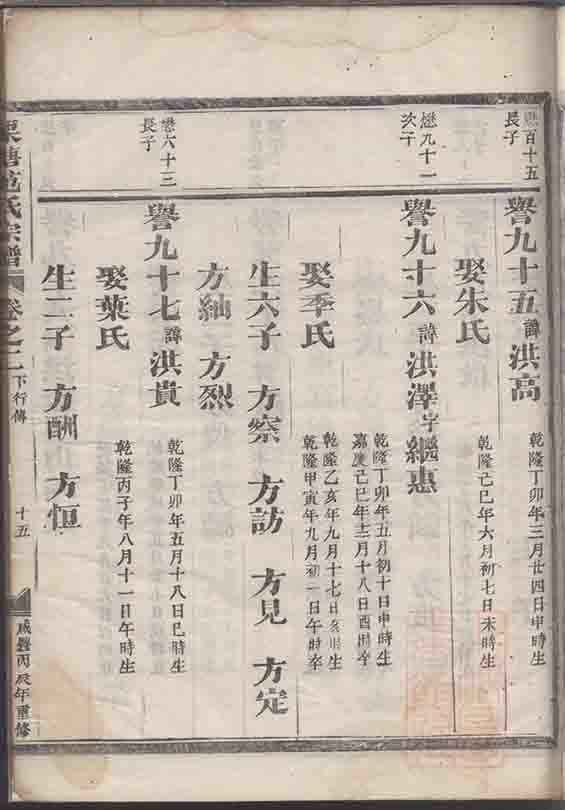 懋百十五
長子
譽九十五 諱 洪高
乾隆丁卯年三月廿四日申時生
娶朱氏
乾隆己巳年六月初七日未時生
懋九十一
次子
譽九十六 諱 洪澤 字 繼惠
乾隆丁卯年五月初十日申時生
嘉慶己巳年三月十八日酉時卒
娶季氏
乾隆乙亥年九月十七日亥時生
乾隆甲寅年九月初一日午時卒
生六子 方察 方訪 方見 方定
方紬 方烈
懋六十三
長子
譽九十七 諱 洪貴
乾隆丁卯年五月十八日巳時生
娶葉氏
乾隆丙子年八月十一日午時生
生二子 方酬 方恒
范氏宗譜 卷之二 下行傳 十五 咸豐丙辰年重修